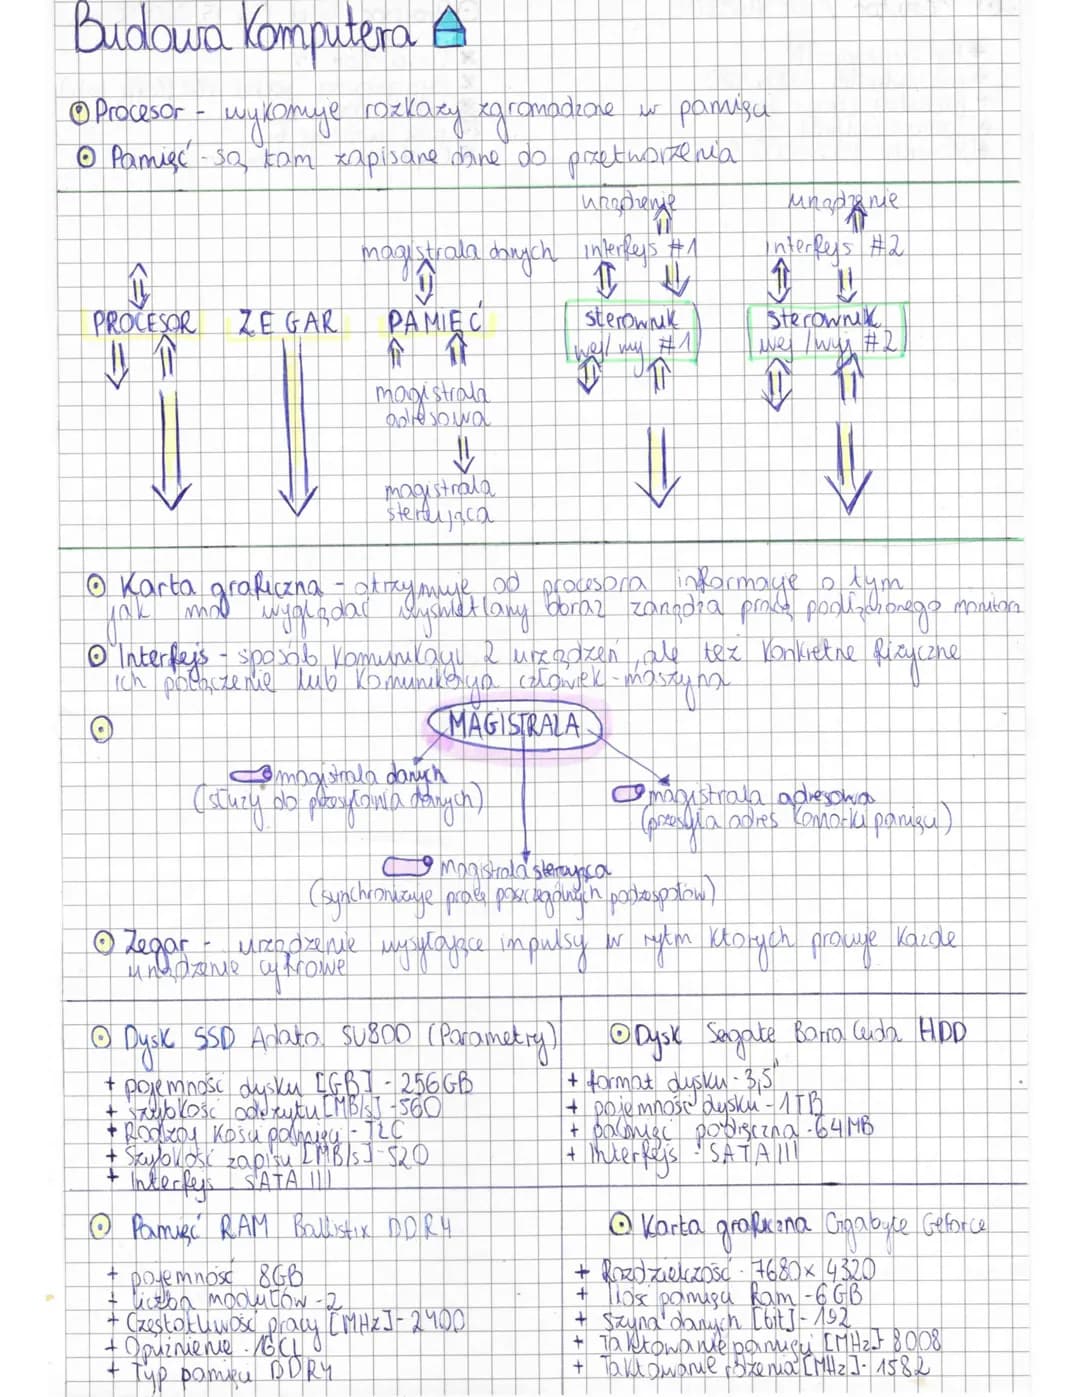 Budowa Komputera
Procesor - wykonuje rozkazy zgromadzone w pamięci
Pamięć - są tam zapisane dane do przetworzenia
urządzenie urządzenie
magistrala danych interfejs #1 interfejs #2
PROCESOR ZEGAR PAMIĘĆ sterownik sterownik
wej/wy #1 wej/wyj #2
magistrala
adresowa
magistrala
sterująca
Karta graficzna - otrzymuje od procesora informacje o tym
jak ma wyglądać wyświetlany obraz zarządza pracą podłączonego monitora
Interfejs - sposób komunikacji 2 urządzeń, ale też konkretne fizyczne
ich połączenie lub komunikacja człowiek - maszyna
MAGISTRALA
magistrala danych
(służy do przesyłania danych)
magistrala adresowa
(przesyła adres komórki pamięci)
magistrala sterująca
(synchronizuje pracę poszczególnych podzespołów)
Zegar - urządzenie wysyłające impulsy w rytm których pracuje każde
urządzenie cyfrowe
Dysk SSD Adata SU800 (Parametry)
+ pojemność dysku [GB] - 256GB
+ szybkość odczytu [MB/s] - 560
+ Rodzaj kości pamięci - TLC
+ Szybkość zapisu [MB/s] - 520
+ Interfejs - SATA III
Dysk Segate Barra Cuda HDD
+ format dysku - 3,5"
+ pojemność dysku - 1TB
+ pamięć podręczna - 64MB
+ Interfejs - SATA III
Pamięć RAM Ballistix DDR4
+ pojemność 8GB
+ liczba modułów - 2
+ Częstotliwość pracy [MHz] - 2400
+ Opóźnienie - 16CL
+ Typ pamięci DDR4
Karta graficzna Gigabyte Geforce
+ Rozdzielczość - 7680x4320
+ Ilość pamięci Ram - 6GB
+ Szyna danych [bit] - 192
+ Taktowanie pamięci [MHz] - 8008
+ Taktowanie rdzenia [MHz] - 1582